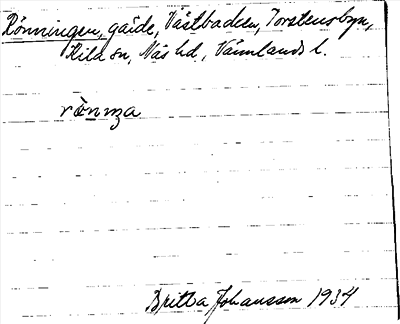 Rönningen, gärde, Västbaden, Torstensbyn,
Kila sn, Näs hd, Värmlands l.
rönnza
Britta Johansson 1934